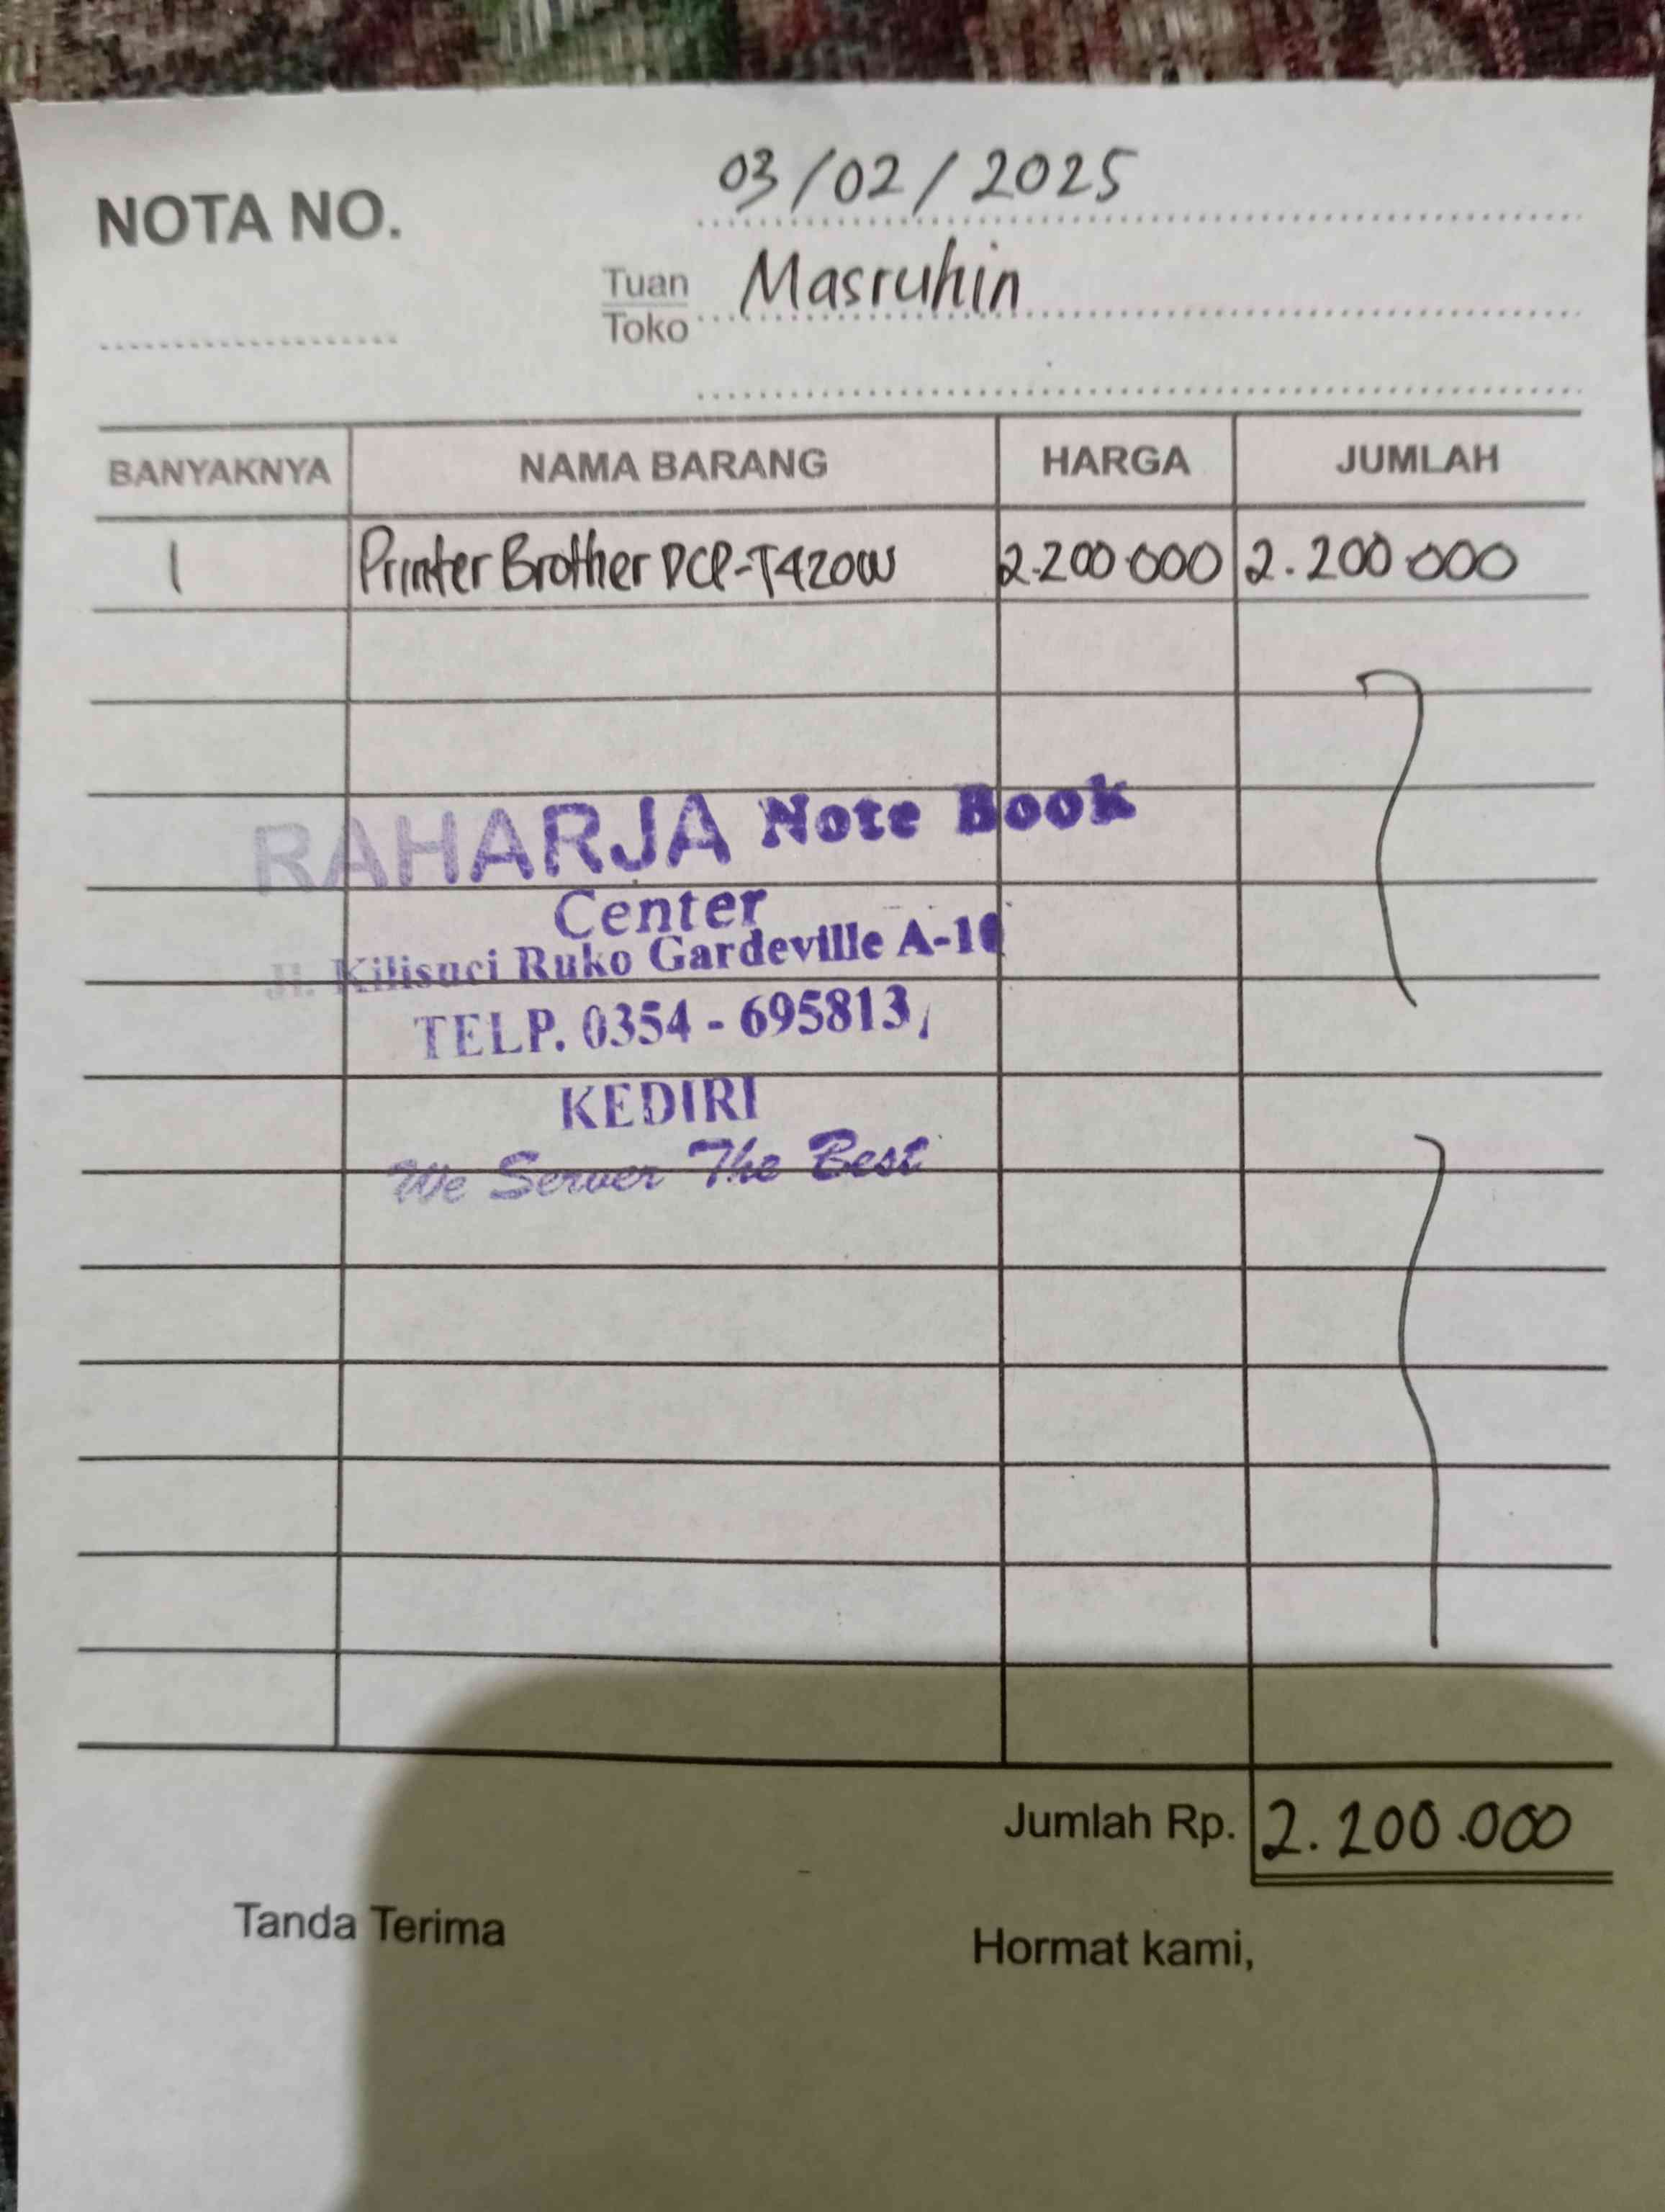 03/02/2025
NOTA NO.
Tuan Masruhin
Toko
BANYAKNYA NAMA BARANG HARGA JUMLAH
1 Printer Brother DCP-T420W 2.200.000 2.200.000
RAHARJA Note Book
Center
Jl. Kilisuci Ruko Gardeville A-10
TELP. 0354 - 695813,
KEDIRI
We Server The Best
Jumlah Rp. 2.200.000
Tanda Terima
Hormat kami,